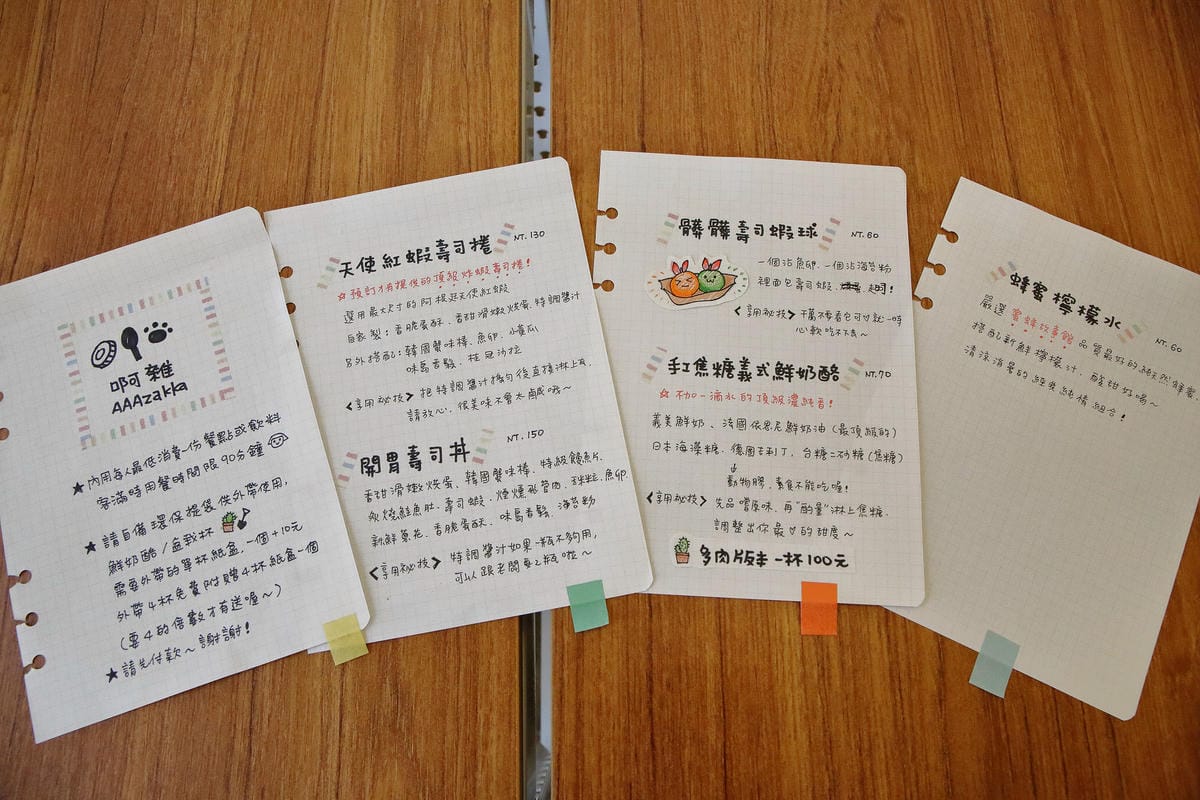 啊雜
AAAzakka
★內用每人最低消費一份餐點或飲料
客滿時用餐時間限90分鐘
★請自備環保提袋供外帶使用,
鮮奶酪/盆栽杯
需要外帶的單杯紙盒,一個+10元
外帶4杯免費附贈4杯紙盒一個
(要4的倍數才有送喔~)
★請先付款~謝謝!
天使紅蝦壽司捲 NT.130
☆預訂才有提供的頂級炸蝦壽司捲!
選用最大尺寸的阿根廷天使紅蝦
自家製:香脆蛋酥、香甜滑嫩烘蛋、特調醬汁
另外搭配:韓國蟹味棒、魚卵、小黃瓜
味島香鬆、桂冠沙拉
<享用祕技>把特調醬汁搖勻後直接淋上去,
請放心,很美味不會太鹹哦~
開胃壽司丼 NT.150
香甜滑嫩烘蛋、韓國蟹味棒、特級鮪魚片、
炙燒鮭魚肚、壽司蝦、煙燻魷魚、玉米粒、魚卵
新鮮蔥花、香脆蛋酥、味島香鬆、海苔粉
<享用祕技>特調醬汁如果一瓶不夠用,
可以跟老闆要2瓶啦~
髒髒壽司蝦球 NT.60
一個沾魚卵、一個沾海苔粉
裡面包壽司蝦、起司!
<享用祕技>千萬不要看它可愛就一時
心軟吃不下去~
手工焦糖義式鮮奶酪 NT.70
☆不加一滴水的頂級濃純香!
義美鮮奶、法國依思尼鮮奶油(最頂級的)
日本海藻糖、德國吉利丁、台糖二砂糖(焦糖)
動物膠,素食不能吃喔!
<享用祕技>先品嚐原味,再"酌量"淋上焦糖,
調整出你最♡的甜度~
多肉版本一杯100元
蜂蜜檸檬水 NT.60
嚴選蜜蜂故事館品質最好的純天然蜂蜜
搭配新鮮檸檬汁,酸甜好喝~
清涼消暑的經典純情組合!